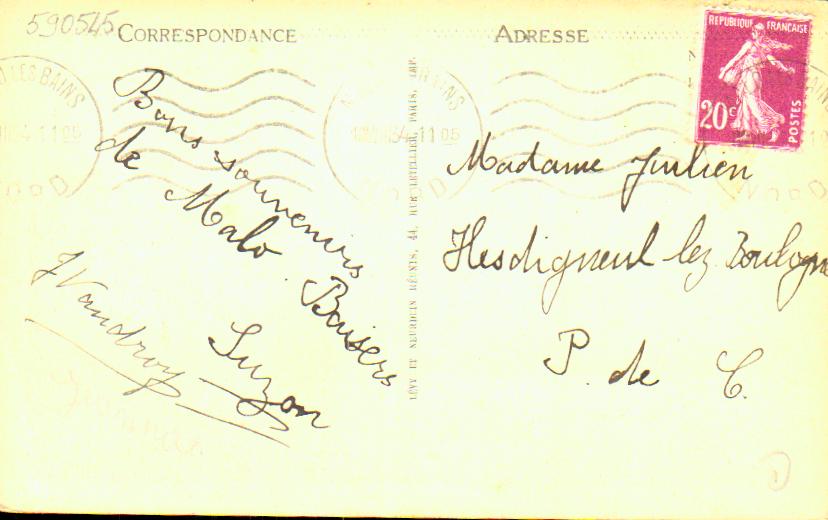 590545
CORRESPONDANCE
ADRESSE
REPUBLIQUE FRANÇAISE
20c
POSTES
LES BAINS
34 11 05
NORD
Bons souvenirs
de Malo. Baisers
Suzon
Madame Julien
Hesdigneul lez Boulogne
P. de C.
LÉVY ET NEURDEIN RÉUNIS, 44, RUE LETELLIER, PARIS, IMP.